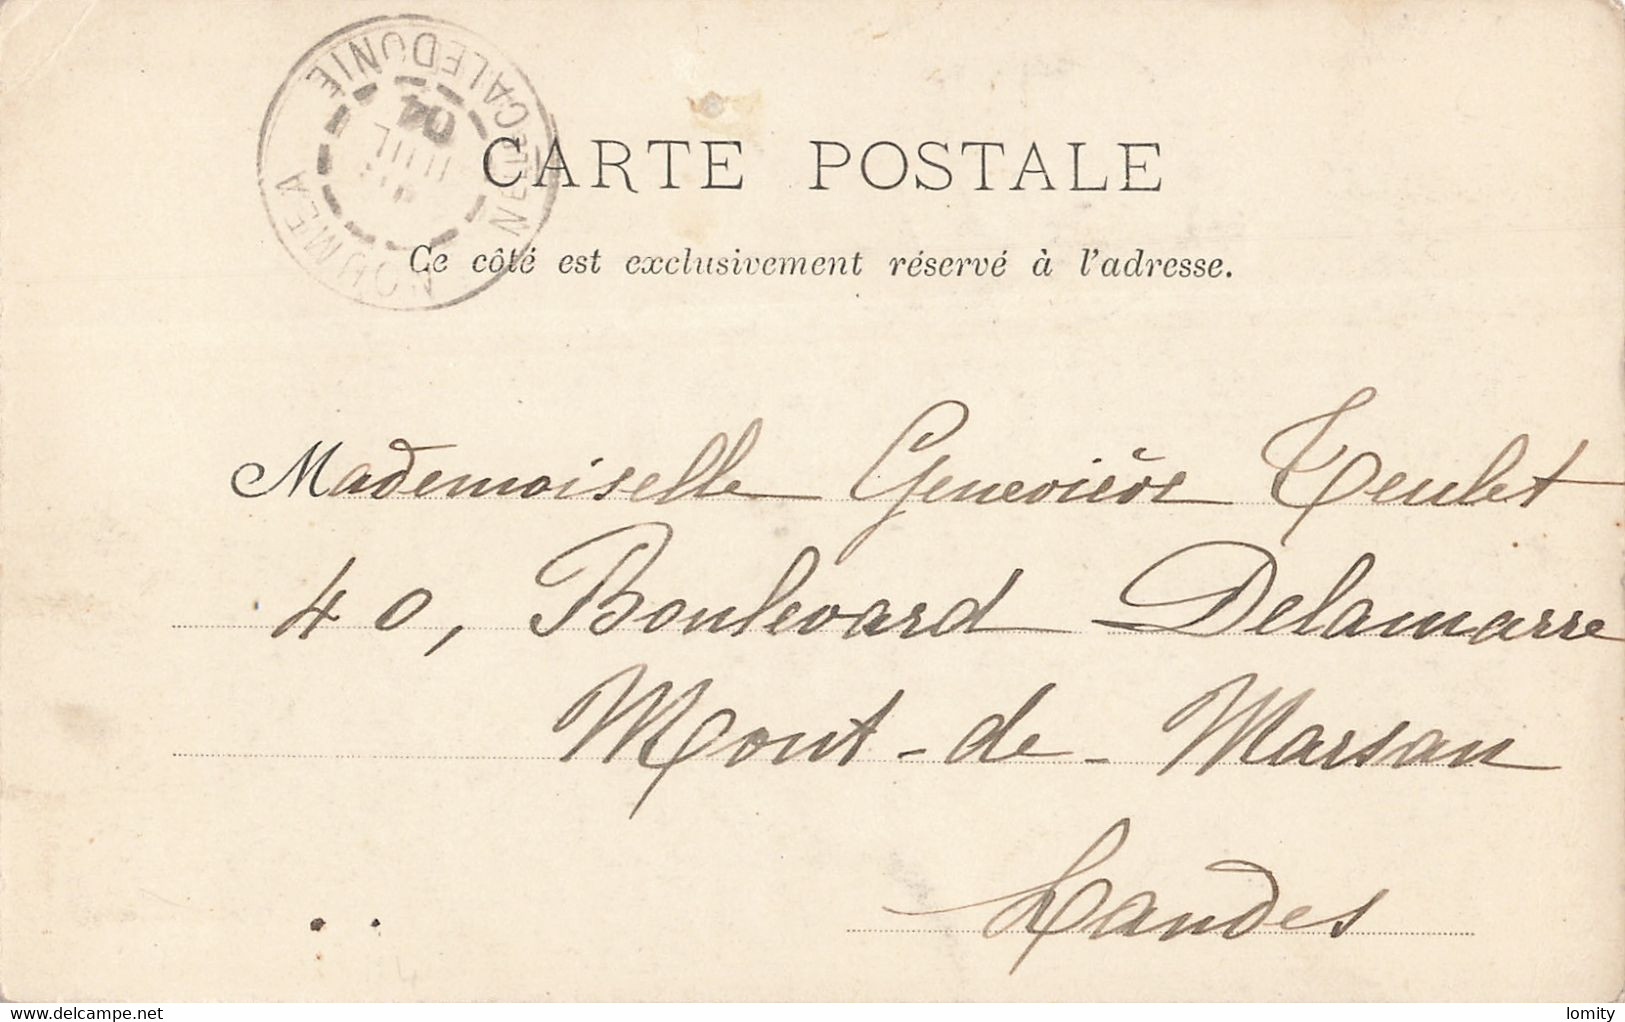 NOUMEA NELLE CALEDONIE
JUIL
04
CARTE POSTALE
Ce côté est exclusivement réservé à l'adresse.
Mademoiselle Geneviève Teulet
40, Boulevard Delamarre
Mont-de-Marsan
Landes
delcampe.net
lomity